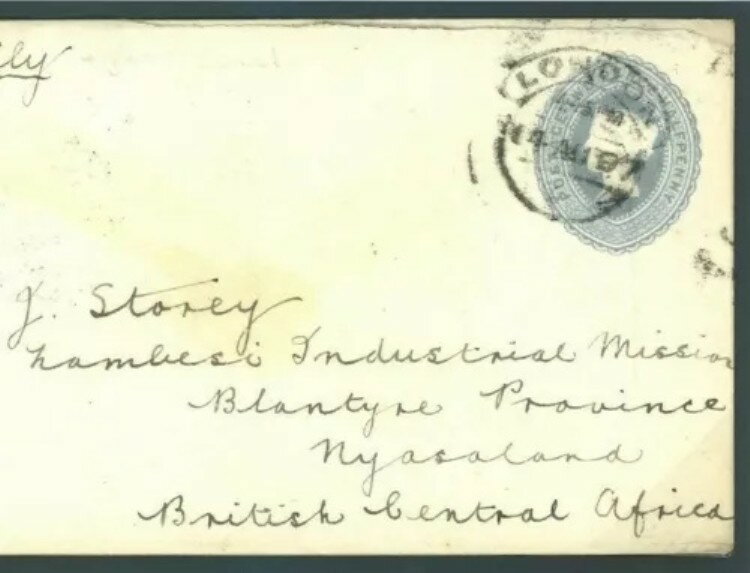 lly
LONDON
POSTAGE HALFPENNY
J. Storey
Zambesi Industrial Mission
Blantyre Province
Nyasaland
British Central Africa